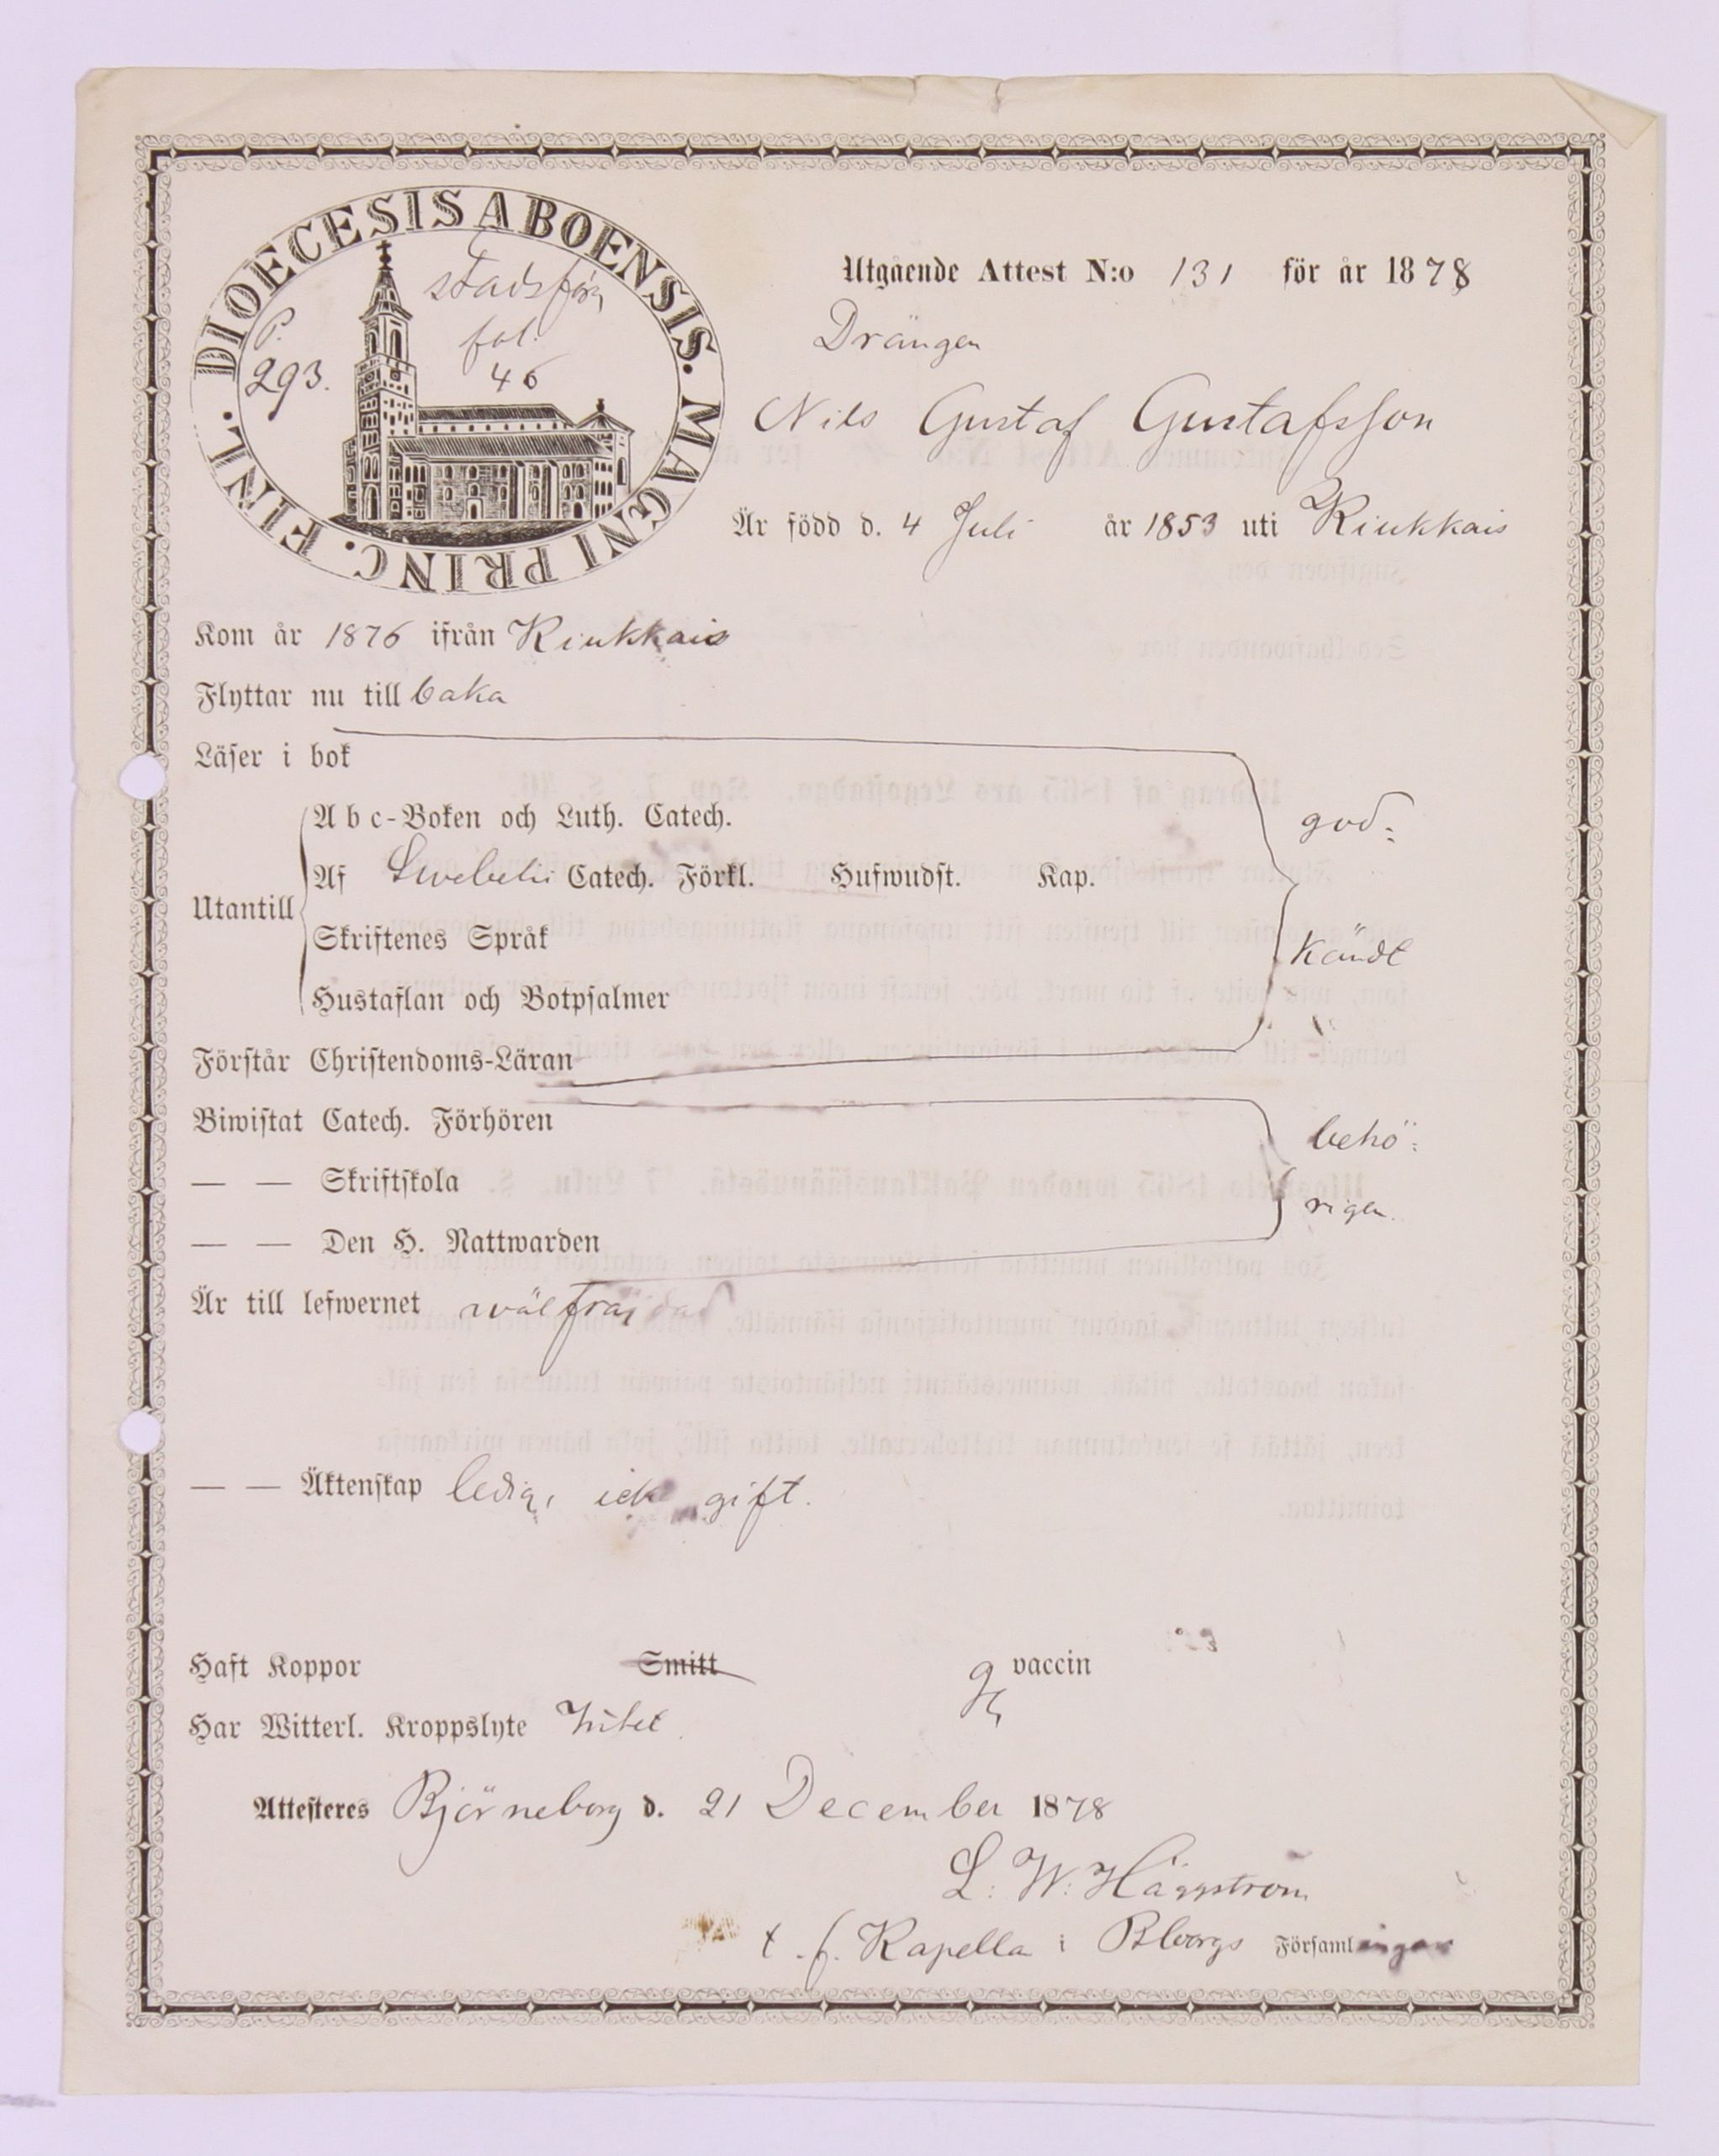 DIOECESIS ABOENSIS. MAGNI PRINC. FINL.
stadsförs
fol.
46
P.
293.
Utgående Attest N:o 131 för år 1878
Drängen
Nils Gustaf Gustafsson
Är född d. 4 Juli år 1853 uti Kiukkais
Kom år 1876 ifrån Kiukkais
Flyttar nu till baka
Läser i bok
Abc-Boken och Luth. Catech.
god-
Utantill
Af Swebelii Catech. Förkl. Hufwudst. Kap.
Skriftenes Språk
kändt
Hustaflan och Botpsalmer
Förstår Christendoms-Läran
Biwistat Catech. Förhören
behö-
— — Skriftskola
rigen.
— — Den H. Nattwarden
Är till lefwernet wälfräjdad
— — Äktenskap ledig, icke gift.
Haft Koppor Smitt vaccin
Har Witterl. Kroppslyte Intet
Attesteres Björneborg d. 21 December 1878
L. W. Häggström
t. f. Kapella i Bborgs Församlingar